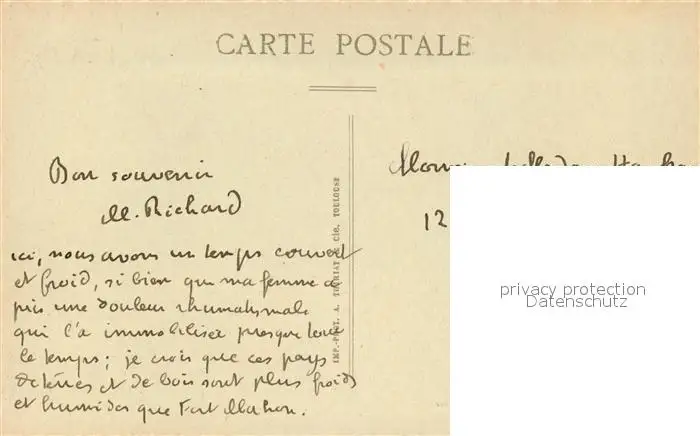 CARTE POSTALE
Bon souvenir
M. Richard
ici, nous avons un temps couvert
et froid, si bien que ma femme a
pris une douleur rhumatismale
qui l'a immobilisée presque tout
le temps; je crois que ces pays
de et de bois sont plus froids
et humides que Fort Mahon.
IMP.-PHOT. A. THIRIAT & Cie, TOULOUSE
12
privacy protection
Datenschutz